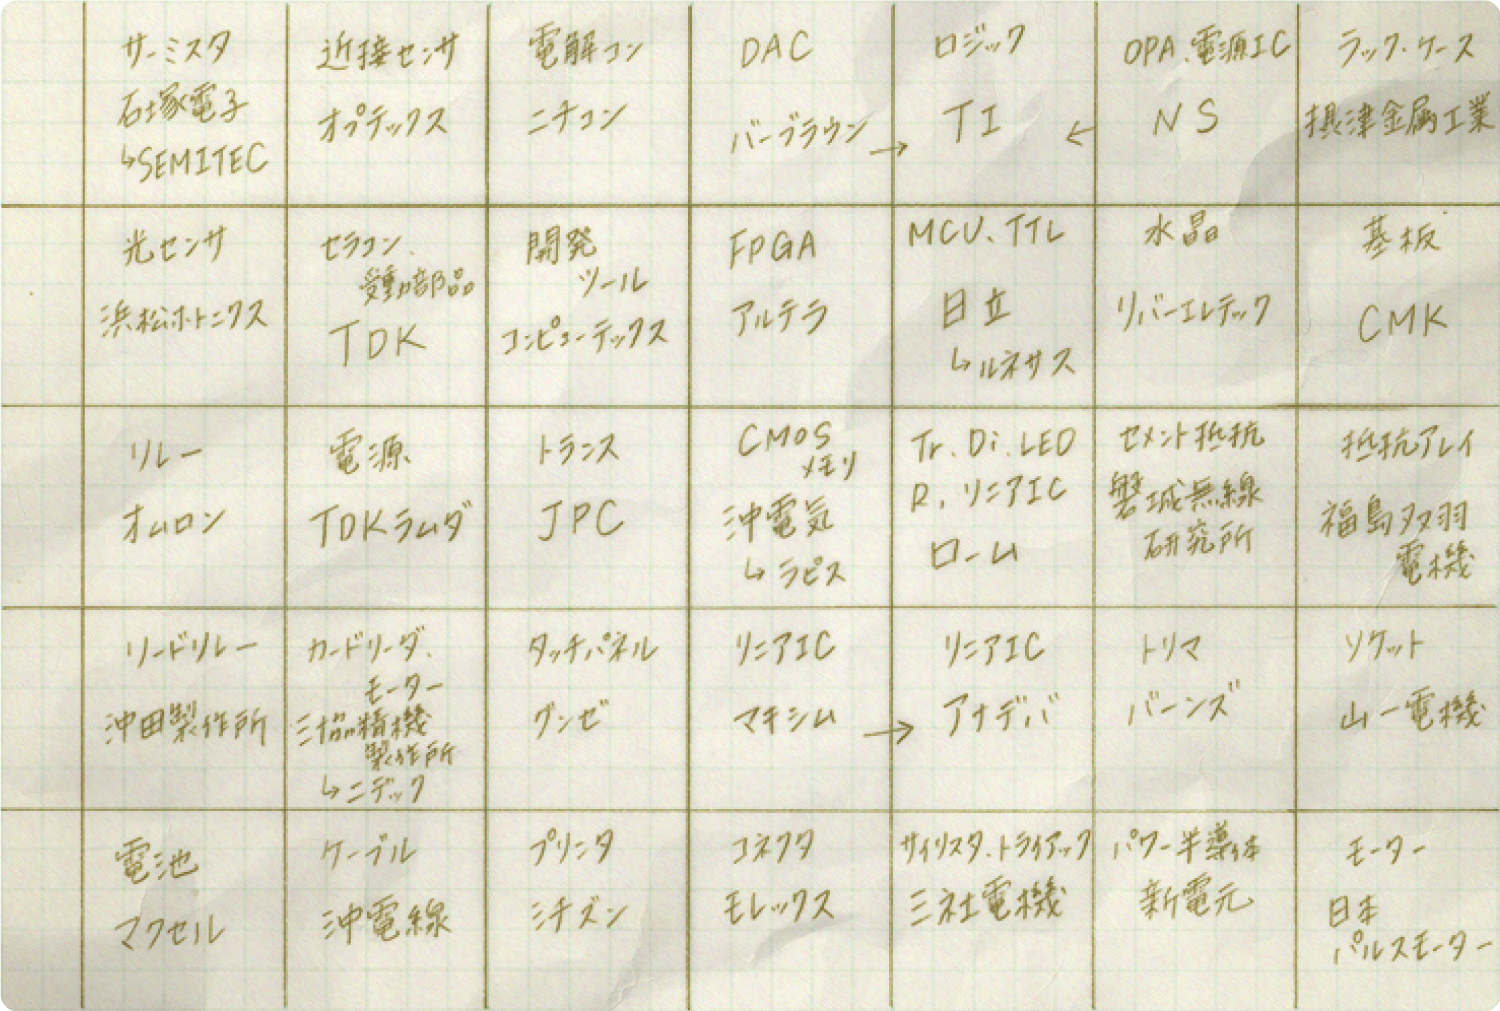 サーミスタ
石塚電子
↳SEMITEC
近接センサ
オプテックス
電解コン
ニチコン
DAC
バーブラウン
→
ロジック
TI
←
OPA、電源IC
NS
ラック・ケース
摂津金属工業
光センサ
浜松ホトニクス
セラコン、
受動部品
TDK
開発
ツール
コンピューテックス
FPGA
アルテラ
MCU、TTL
日立
↳ルネサス
水晶
リバーエレテック
基板
CMK
リレー
オムロン
電源
TDKラムダ
トランス
JPC
CMOS
メモリ
沖電気
↳ラピス
Tr、Di、LED
R、リニアIC
ローム
セメント抵抗
磐城無線
研究所
抵抗アレイ
福島双羽
電機
リードリレー
沖田製作所
カードリーダ、
モーター
三協精機
製作所
↳ニデック
タッチパネル
グンゼ
リニアIC
マキシム
→
リニアIC
アナデバ
トリマ
バーンズ
ソケット
山一電機
電池
マクセル
ケーブル
沖電線
プリンタ
シチズン
コネクタ
モレックス
サイリスタ、トライアック
三社電機
パワー半導体
新電元
モーター
日本
パルスモーター